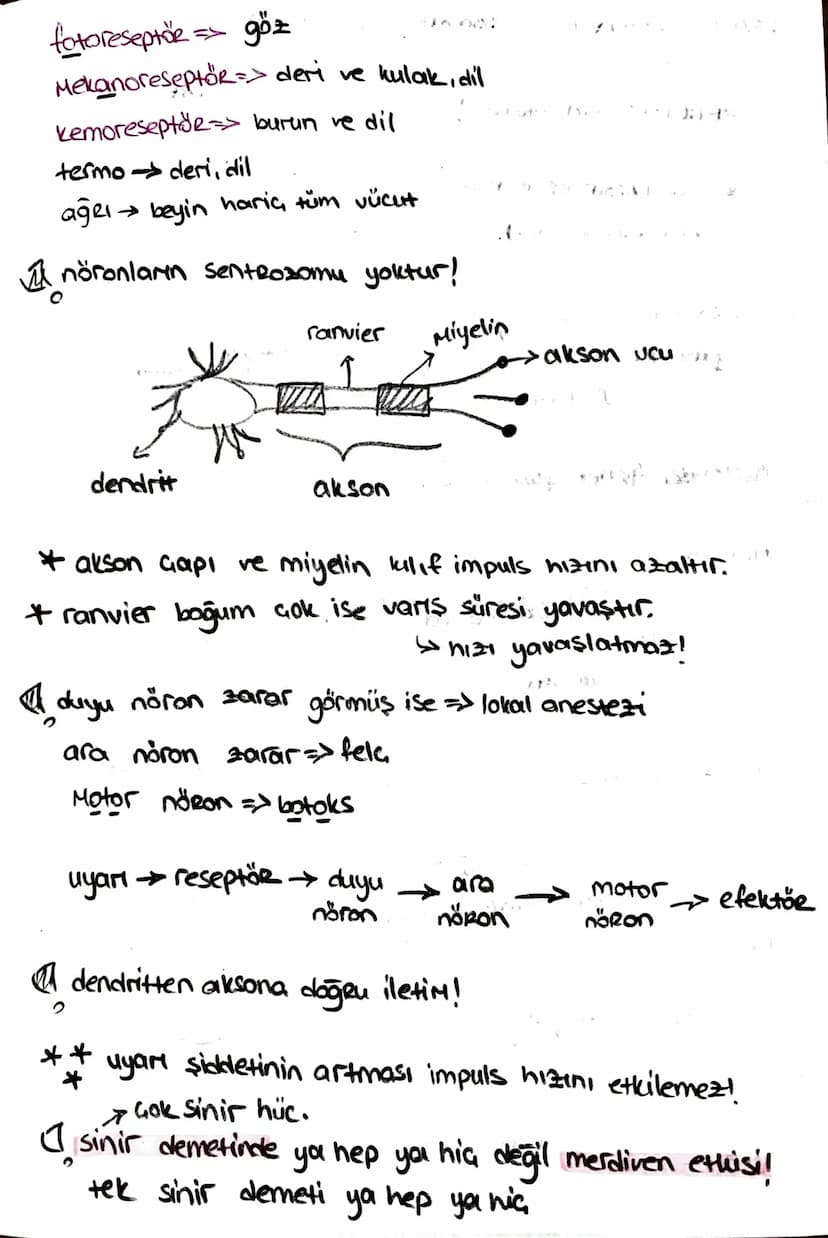 fotoreseptör => göz
Mekanoreseptör => deri ve kulak, dil
kemoreseptör => burun ve dil
termo → deri, dil
ağrı → beyin hariç tüm vücut
nöronların sentrozomu yoktur!
ranvier
Miyelin
akson ucu
dendrit
akson
* akson çapı ve miyelin kılıf impuls hızını azaltır.
* ranvier boğum çok ise varış süresi yavaştır.
↳ hızı yavaşlatmaz!
duyu nöron zarar görmüş ise => lokal anestezi
ara nöron zarar => felç
Motor nöron => botoks
uyarı → reseptör → duyu nöron → ara nöron → motor nöron → efektör
dendritten aksona doğru iletim!
*** uyarı şiddetinin artması impuls hızını etkilemez!
↗ çok sinir hüc.
sinir demetinde ya hep ya hiç değil merdiven etkisi!
tek sinir demeti ya hep ya hiç